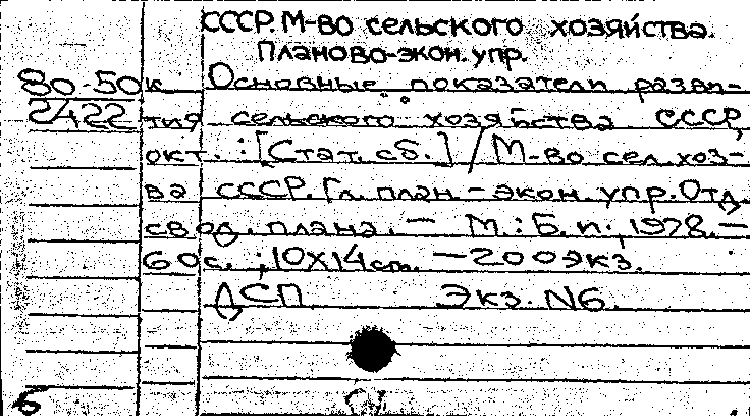 СССР. М-во сельского хозяйства.
Планово-экон. упр.
80-50к Основные показатели разви-
2422 тия сельского хозяйства СССР,
окт. : [Стат. сб.] / М-во сел. хоз-
ва СССР. Гл. план.-экон. упр. Отд.
свод. плана. — М. : Б. и., 1978. —
60 с. ; 10х14 см. — 200 экз.
ДСП Экз. N6.